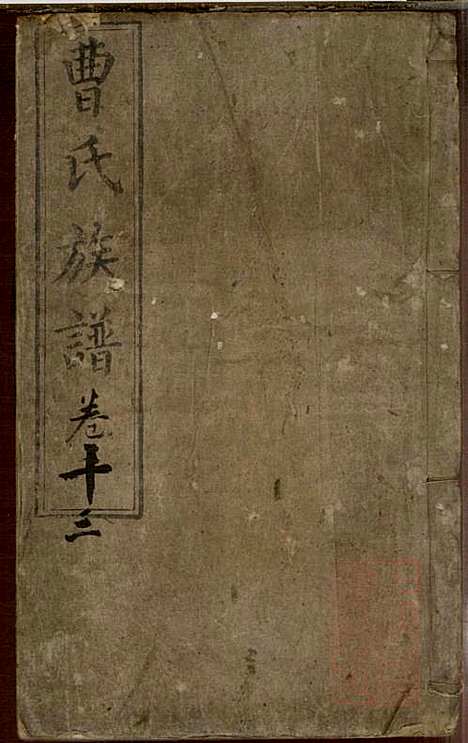 曹氏族譜
卷十三